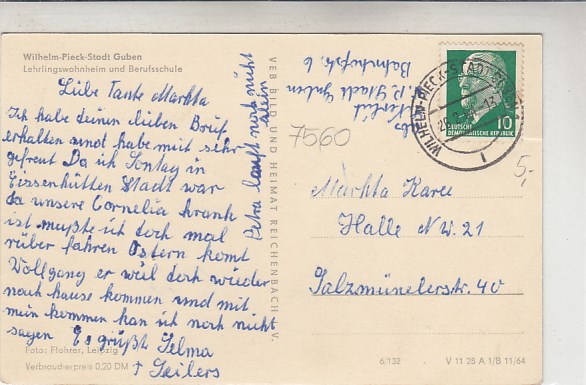 Wilhelm-Pieck-Stadt Guben
Lehrlingswohnheim und Berufsschule
Liebe Tante Martta
Ich habe deinen lieben Brief
erhalten und habe mich sehr
gefreut Da ich Sontag in
Eissenhütten Stadt war
da unsere Cornelia krank
ist mußte ich doch mal
rüber fahren Ostern komt
Wollgang er weil doch wieder
nach hause kommen und mit
mein kommen kan ich noch nicht
sagen Es grüßt Selma
Seilers
Foto: Flohrer, Leipzig
Verbraucherpreis 0,20 DM
Petra lauft noch nicht
allein
VEB BILD UND HEIMAT REICHENBACH I. V.
W. P. Stadt Guben
Bahnhofstr. 6
7560
WILHELM-PIECK-STADT GUBEN
1
10
DEUTSCHE
DEMOKRATISCHE REPUBLIK
5,-
Martta Karee
Halle N W. 21
Salzmünelerstr. 40
6/132
V 11 28 A 1/B 11/64